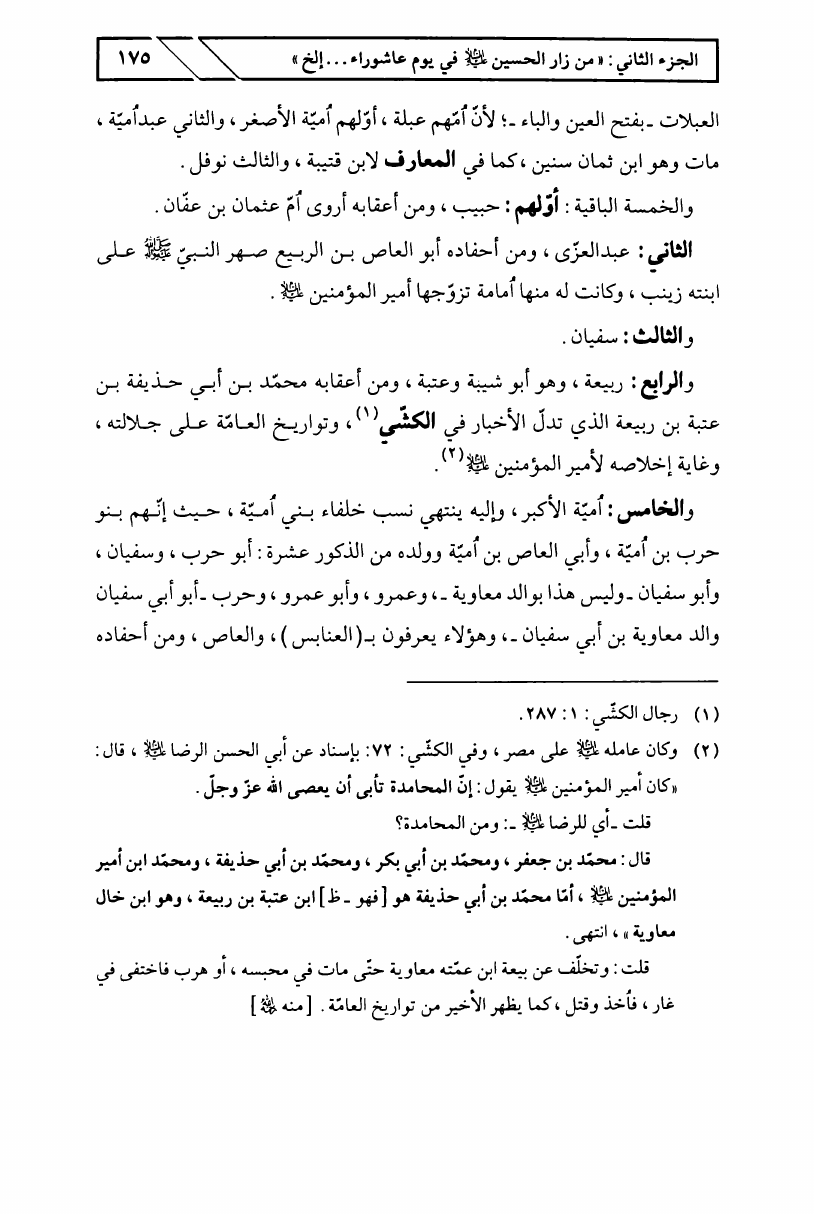 الجزء الثاني: «من زار الحسين عليه السلام في يوم عاشوراء... إلخ» ١٧٥
العبلات ـ بفتح العين والباء ـ؛ لأنّ اُمّهم عبلة، أوّلهم اُميّة الأصغر، والثاني عبداُميّة،
مات وهو ابن ثمان سنين، كما في المعارف لابن قتيبة، والثالث نوفل.
والخمسة الباقية: أوّلهم: حبيب، ومن أعقابه أروى اُمّ عثمان بن عفّان.
الثاني: عبدالعزّى، ومن أحفاده أبو العاص بن الربيع صهر النبيّ ﷺ على
ابنته زينب، وكانت له منها اُمامة تزوّجها أمير المؤمنين عليه السلام.
والثالث: سفيان.
والرابع: ربيعة، وهو أبو شيبة وعتبة، ومن أعقابه محمّد بن أبي حذيفة بن
عتبة بن ربيعة الذي تدلّ الأخبار في الكشّي(١)، وتواريخ العامّة على جلالته،
وغاية إخلاصه لأمير المؤمنين عليه السلام(٢).
والخامس: اُميّة الأكبر، وإليه ينتهي نسب خلفاء بني اُميّة، حيث إنّهم بنو
حرب بن اُميّة، وأبي العاص بن اُميّة وولده من الذكور عشرة: أبو حرب، وسفيان،
وأبو سفيان ـ وليس هذا بوالد معاوية ـ، وعمرو، وأبو عمرو، وحرب ـ أبو أبي سفيان
والد معاوية بن أبي سفيان ـ، وهؤلاء يعرفون بـ(العنابس)، والعاص، ومن أحفاده
(١) رجال الكشّي: ١: ٢٨٧.
(٢) وكان عامله عليه السلام على مصر، وفي الكشّي: ٧٢: بإسناد عن أبي الحسن الرضا عليه السلام، قال:
«كان أمير المؤمنين عليه السلام يقول: إنّ المحامدة تأبى أن يعصى الله عزّ وجلّ.
قلت ـ أي للرضا عليه السلام ـ: ومن المحامدة؟
قال: محمّد بن جعفر، ومحمّد بن أبي بكر، ومحمّد بن أبي حذيفة، ومحمّد ابن أمير
المؤمنين عليه السلام، أمّا محمّد بن أبي حذيفة هو [فهو ـ ظ] ابن عتبة بن ربيعة، وهو ابن خال
معاوية»، انتهى.
قلت: وتخلّف عن بيعة ابن عمّته معاوية حتّى مات في محبسه، أو هرب فاختفى في
غار، فاُخذ وقتل، كما يظهر الأخير من تواريخ العامّة. [منه رحمه الله]